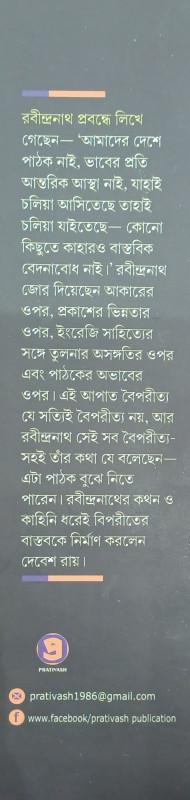 রবীন্দ্রনাথ প্রবন্ধে লিখে
গেছেন— ‘আমাদের দেশে
পাঠক নাই, ভাবের প্রতি
আন্তরিক আস্থা নাই, যাহাই
চলিয়া আসিতেছে তাহাই
চলিয়া যাইতেছে— কোনো
কিছুতে কাহারও বাস্তবিক
বেদনাবোধ নাই।’ রবীন্দ্রনাথ
জোর দিয়েছেন আকারের
ওপর, প্রকাশের ভিন্নতার
ওপর, ইংরেজি সাহিত্যের
সঙ্গে তুলনার অসঙ্গতির ওপর
এবং পাঠকের অভাবের
ওপর। এই আপাত বৈপরীত্য
যে সত্যিই বৈপরীত্য নয়, আর
রবীন্দ্রনাথ সেই সব বৈপরীত্য-
সহই তাঁর কথা যে বলেছেন—
এটা পাঠক বুঝে নিতে
পারেন। রবীন্দ্রনাথের কথন ও
কাহিনি ধরেই বিপরীতের
বাস্তবকে নির্মাণ করলেন
দেবেশ রায়।
প্র
PRATIVASH
prativash1986@gmail.com
f www.facebook/prativash publication